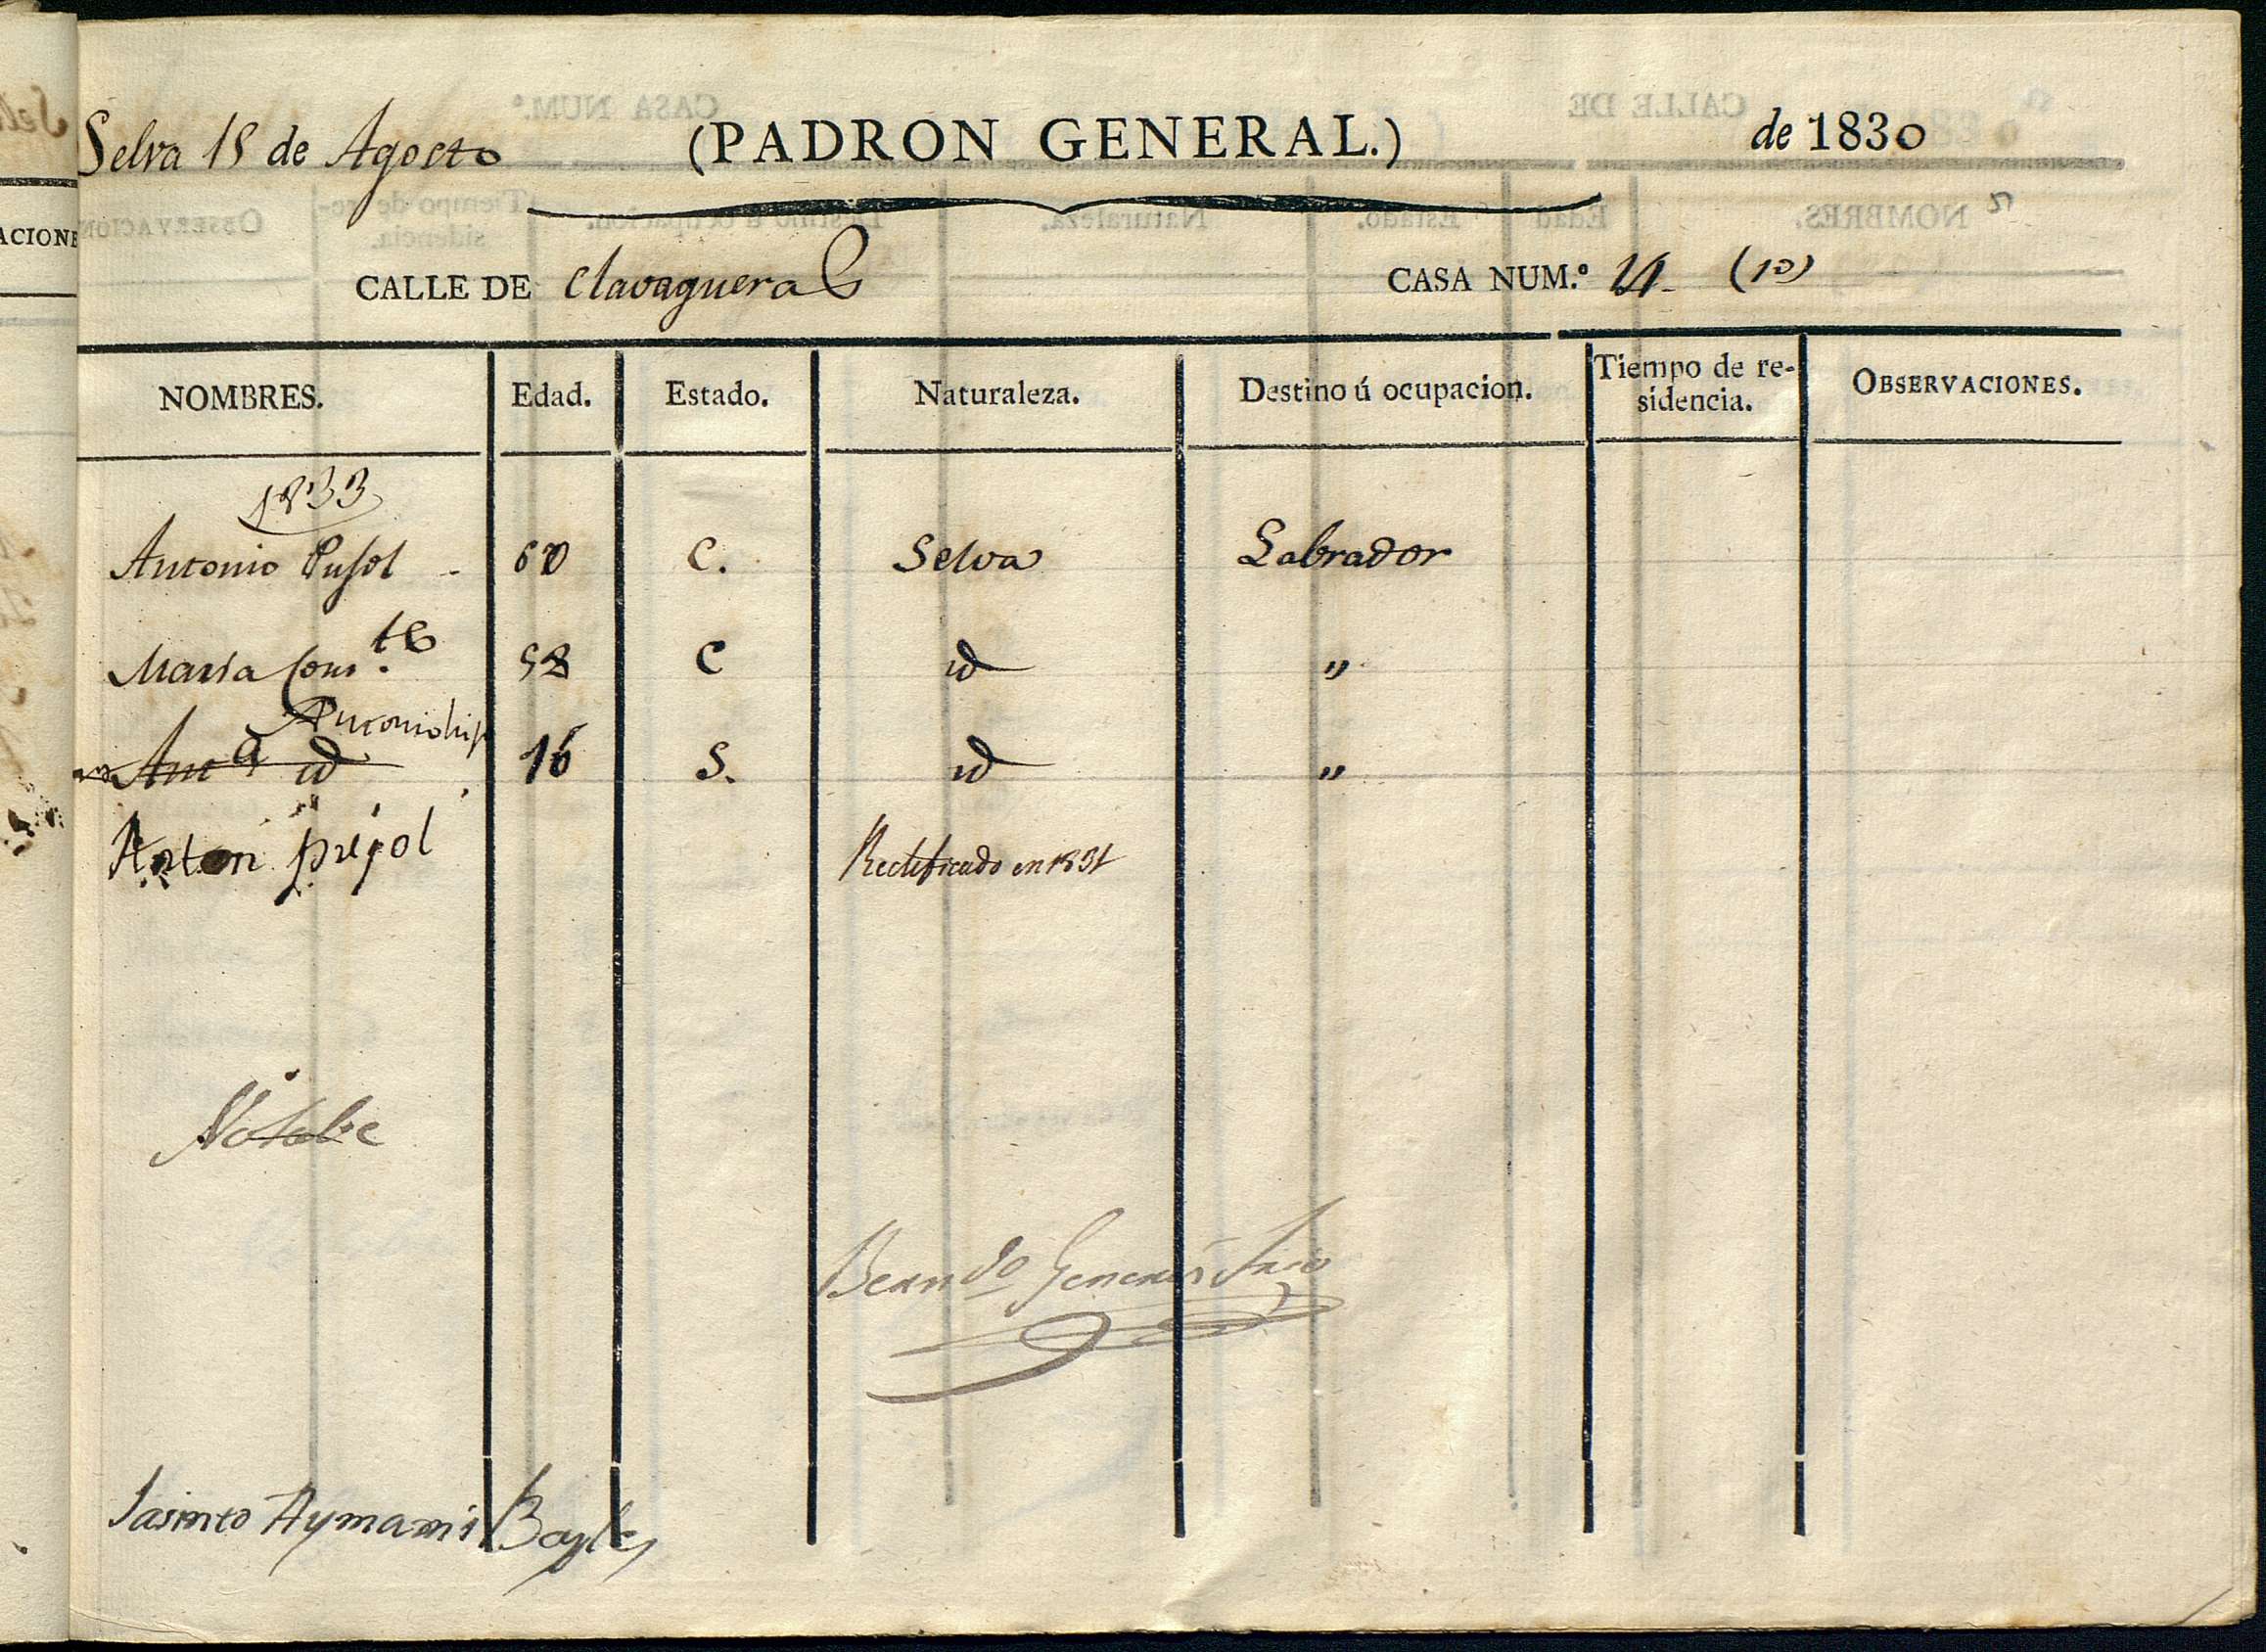 Selva 18 de Agosto (PADRON GENERAL.) de 1830
CALLE DE Clavaguera CASA NUM.º (10)
NOMBRES. Edad. Estado. Naturaleza. Destino ú ocupacion. Tiempo de re-sidencia. OBSERVACIONES.
1833
Antonio Pujol - 60 C. Selva Labrador
Maria Cons.te 58 C id "
Antonio hijo
Ant.a id 16 S. id "
Anton pujol Rectificado en 1831
Notable
Bern.do Generés Srio
Jasinto Aymami Bayle
ACIONE